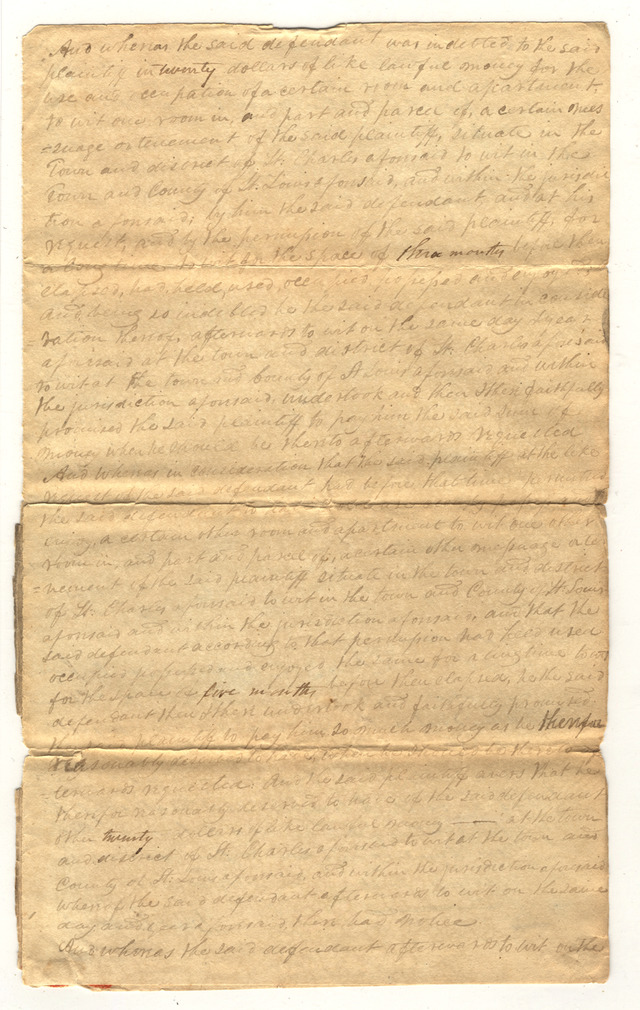 And whereas the said defendant was indebted to the said
plaintiff in twenty dollars of like lawful money for the
use and occupation of a certain room and apartment
to wit one room in, and part and parcel of, a certain mes
=suage or tenement of the said plaintiff, situate in the
Town and district of St. Charles aforesaid to wit in the
Town and County of St. Louis aforesaid, and within the jurisdic
tion aforesaid, by him the said defendant, and at his
request, and by the permission of the said plaintiff, for
a long time to wit for the space of three months before then
elapsed, had, held, used, occupied, possessed and enjoyed
And being so indebted he the said defendant in conside
=ration thereof, afterwards to wit on the same day & year
aforesaid at the town and district of St. Charles aforesaid
to wit at the town and County of St Louis aforesaid and within
the jurisdiction aforesaid, undertook and then & there faithfully
promised the said plaintiff to pay him the said sum of
money when he should be thereto afterwards requested
And whereas in consideration that the said plaintiff at the like
request of the said defendant had before that time permitted
the said defendant to
enjoy, a certain other room and apartment to wit one other
room in, and part and parcel of, a certain other messuage or te
=nement of the said plaintiff situate in the town and district
of St. Charles aforesaid to wit in the town and County of St Louis
aforesaid and within the jurisdiction aforesaid, and that the
said defendant according to that permission had held used
occupied possessed and enjoyed the same for a long time to wit
for the space of five months before then elapsed, he the said
defendant then & there undertook and faithfully promised
the said plaintiff to pay him so much money as he therefor
reasonably deserved to have, when he should be thereto af
=terwards requested. And the said plaintiff avers that he
therefor reasonably deserves to have of the said defendant
other twenty dollars of like lawful money —— at the town
and district of St. Charles aforesaid to wit at the town and
County of St. Louis aforesaid, and within the jurisdiction aforesaid
whereof the said defendant afterwards to wit on the same
day and year aforesaid, there, had notice.
And whereas the said defendant afterwards to wit on the